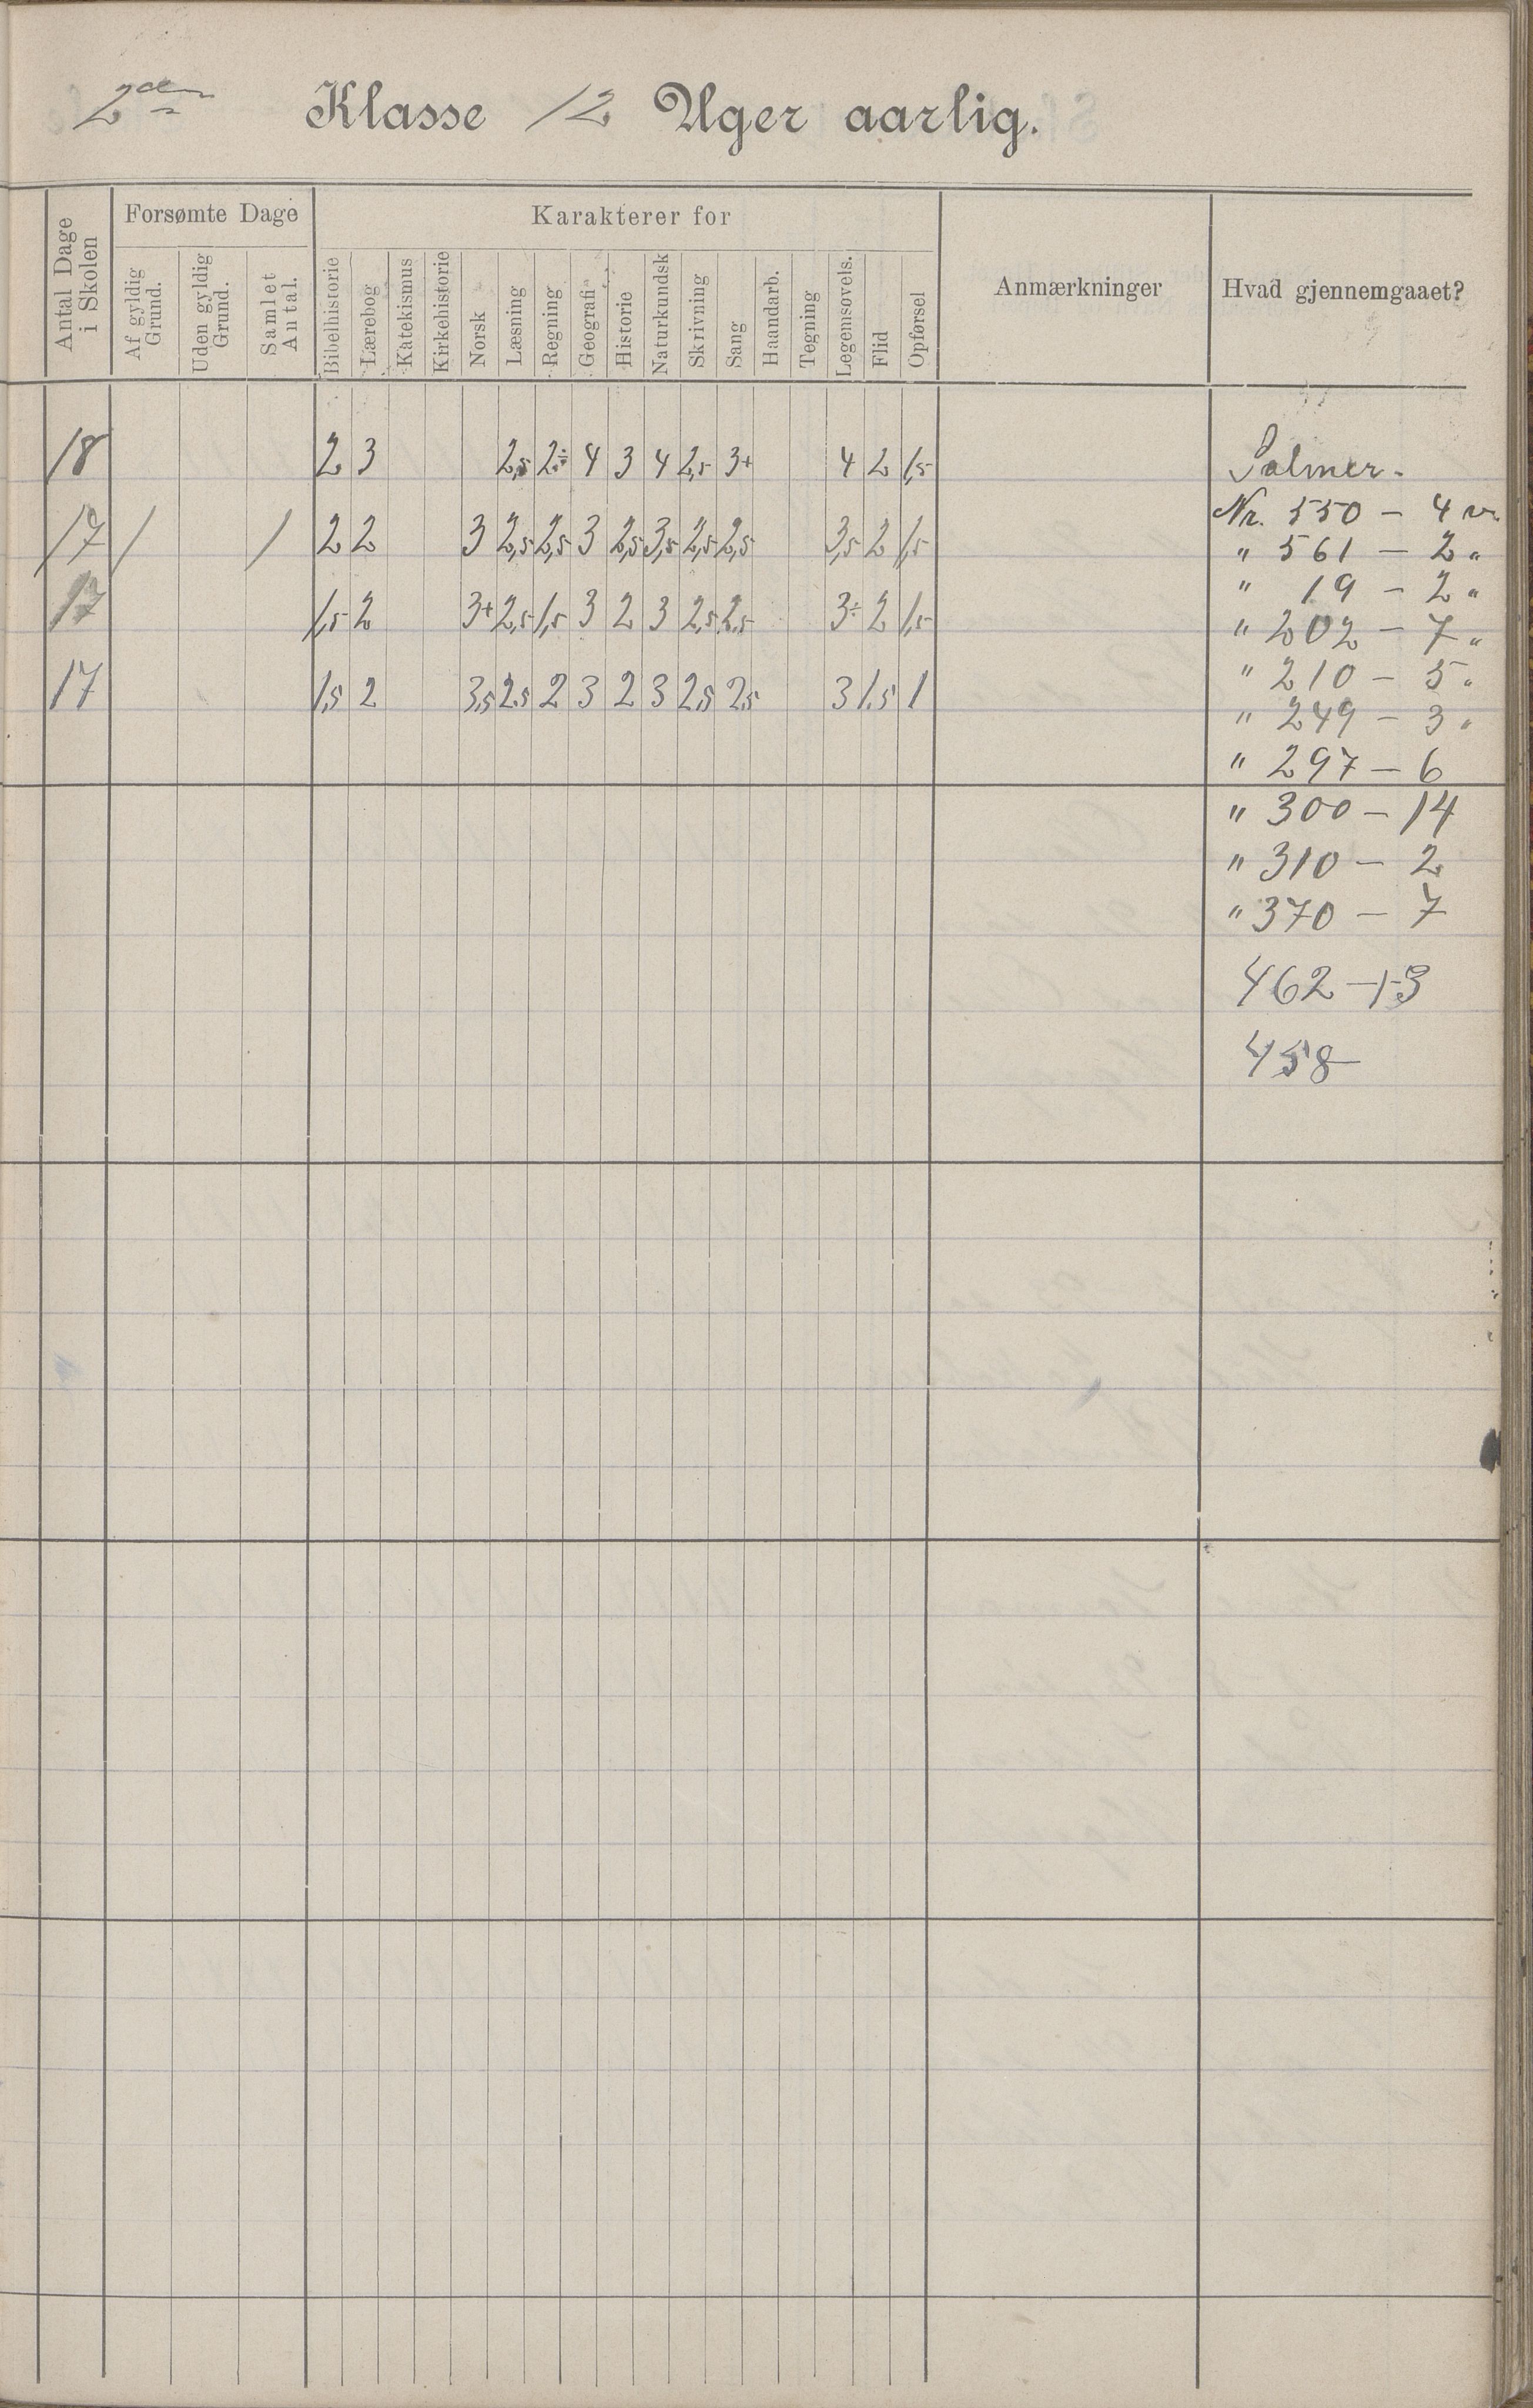 2den Klasse 12 Uger aarlig.
Antal Dage i Skolen
Forsømte Dage
Af gyldig Grund.
Uden gyldig Grund.
Samlet Antal.
Karakterer for
Bibelhistorie
Lærebog
Katekismus
Kirkehistorie
Norsk
Læsning
Regning
Geografi
Historie
Naturkundsk
Skrivning
Sang
Haandarb.
Tegning
Legemsovels.
Flid
Opførsel
Anmærkninger
Hvad gjennemgaaet?
18 2 3 2,5 2÷ 4 3 4 2,5 3+ 4 2 1,5
17 1 1 2 2 3 2,5 2,5 3 2,5 3,5 2,5 2,5 3,5 2 1,5
17 1,5 2 3+ 2,5 1,5 3 2 3 2,5 2,5 3÷ 2 1,5
17 1,5 2 3,5 2,5 2 3 2 3 2,5 2,5 3 1,5 1
Salmer.
Nr. 550 - 4 v.
" 561 - 2 "
" 19 - 2 "
" 202 - 7 "
" 210 - 5 "
" 249 - 3 "
" 297 - 6
" 300 - 14
" 310 - 2
" 370 - 7
462 - 1-3
458